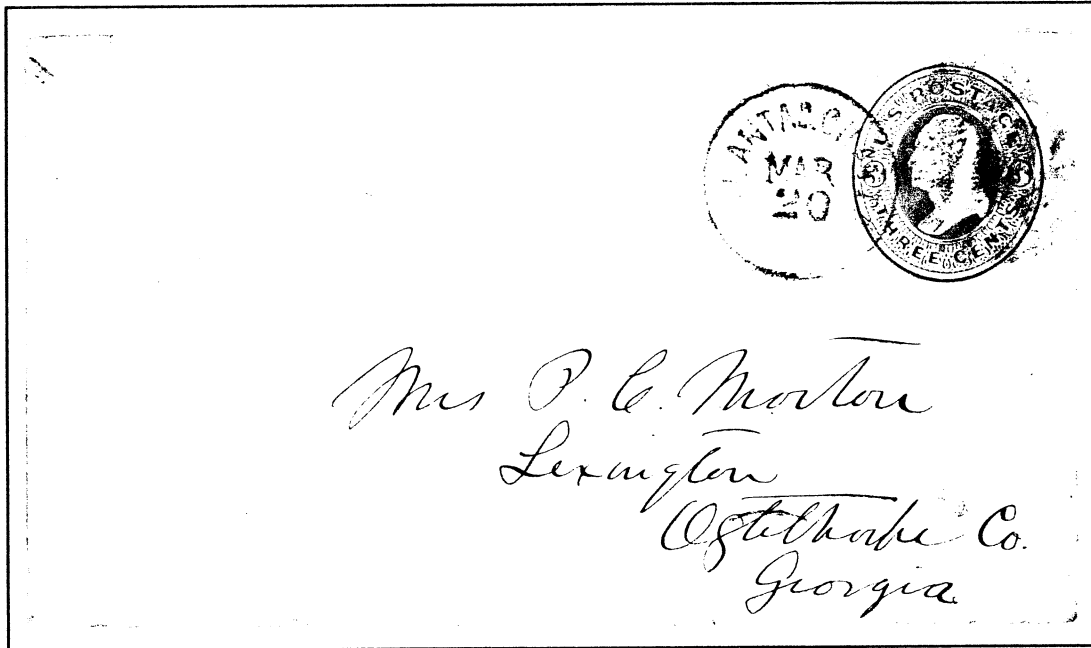 MAR
20
U.S. POSTAGE
3 3
THREE CENTS
Mrs P. C. Morton
Lexington
Oglethorpe Co.
Georgia